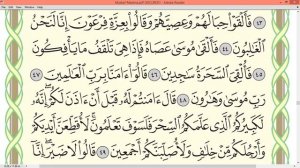 Mushaf Madina.pdf (SECURED) - Adobe Reader
٤٣ فَأَلْقَوْا۟ حِبَالَهُمْ وَعِصِيَّهُمْ وَقَالُوا۟ بِعِزَّةِ فِرْعَوْنَ إِنَّا لَنَحْنُ
ٱلْغَٰلِبُونَ ٤٤ فَأَلْقَىٰ مُوسَىٰ عَصَاهُ فَإِذَا هِىَ تَلْقَفُ مَا يَأْفِكُونَ
٤٥ فَأُلْقِىَ ٱلسَّحَرَةُ سَٰجِدِينَ ٤٦ قَالُوٓا۟ ءَامَنَّا بِرَبِّ ٱلْعَٰلَمِينَ ٤٧
رَبِّ مُوسَىٰ وَهَٰرُونَ ٤٨ قَالَ ءَامَنتُمْ لَهُۥ قَبْلَ أَنْ ءَاذَنَ لَكُمْ إِنَّهُۥ
لَكَبِيرُكُمُ ٱلَّذِى عَلَّمَكُمُ ٱلسِّحْرَ فَلَسَوْفَ تَعْلَمُونَ لَأُقَطِّعَنَّ أَيْدِيَكُمْ
وَأَرْجُلَكُم مِّنْ خِلَٰفٍ وَلَأُصَلِّبَنَّكُمْ أَجْمَعِينَ ٤٩ قَالُوا۟ لَا ضَيْرَ إِنَّآ